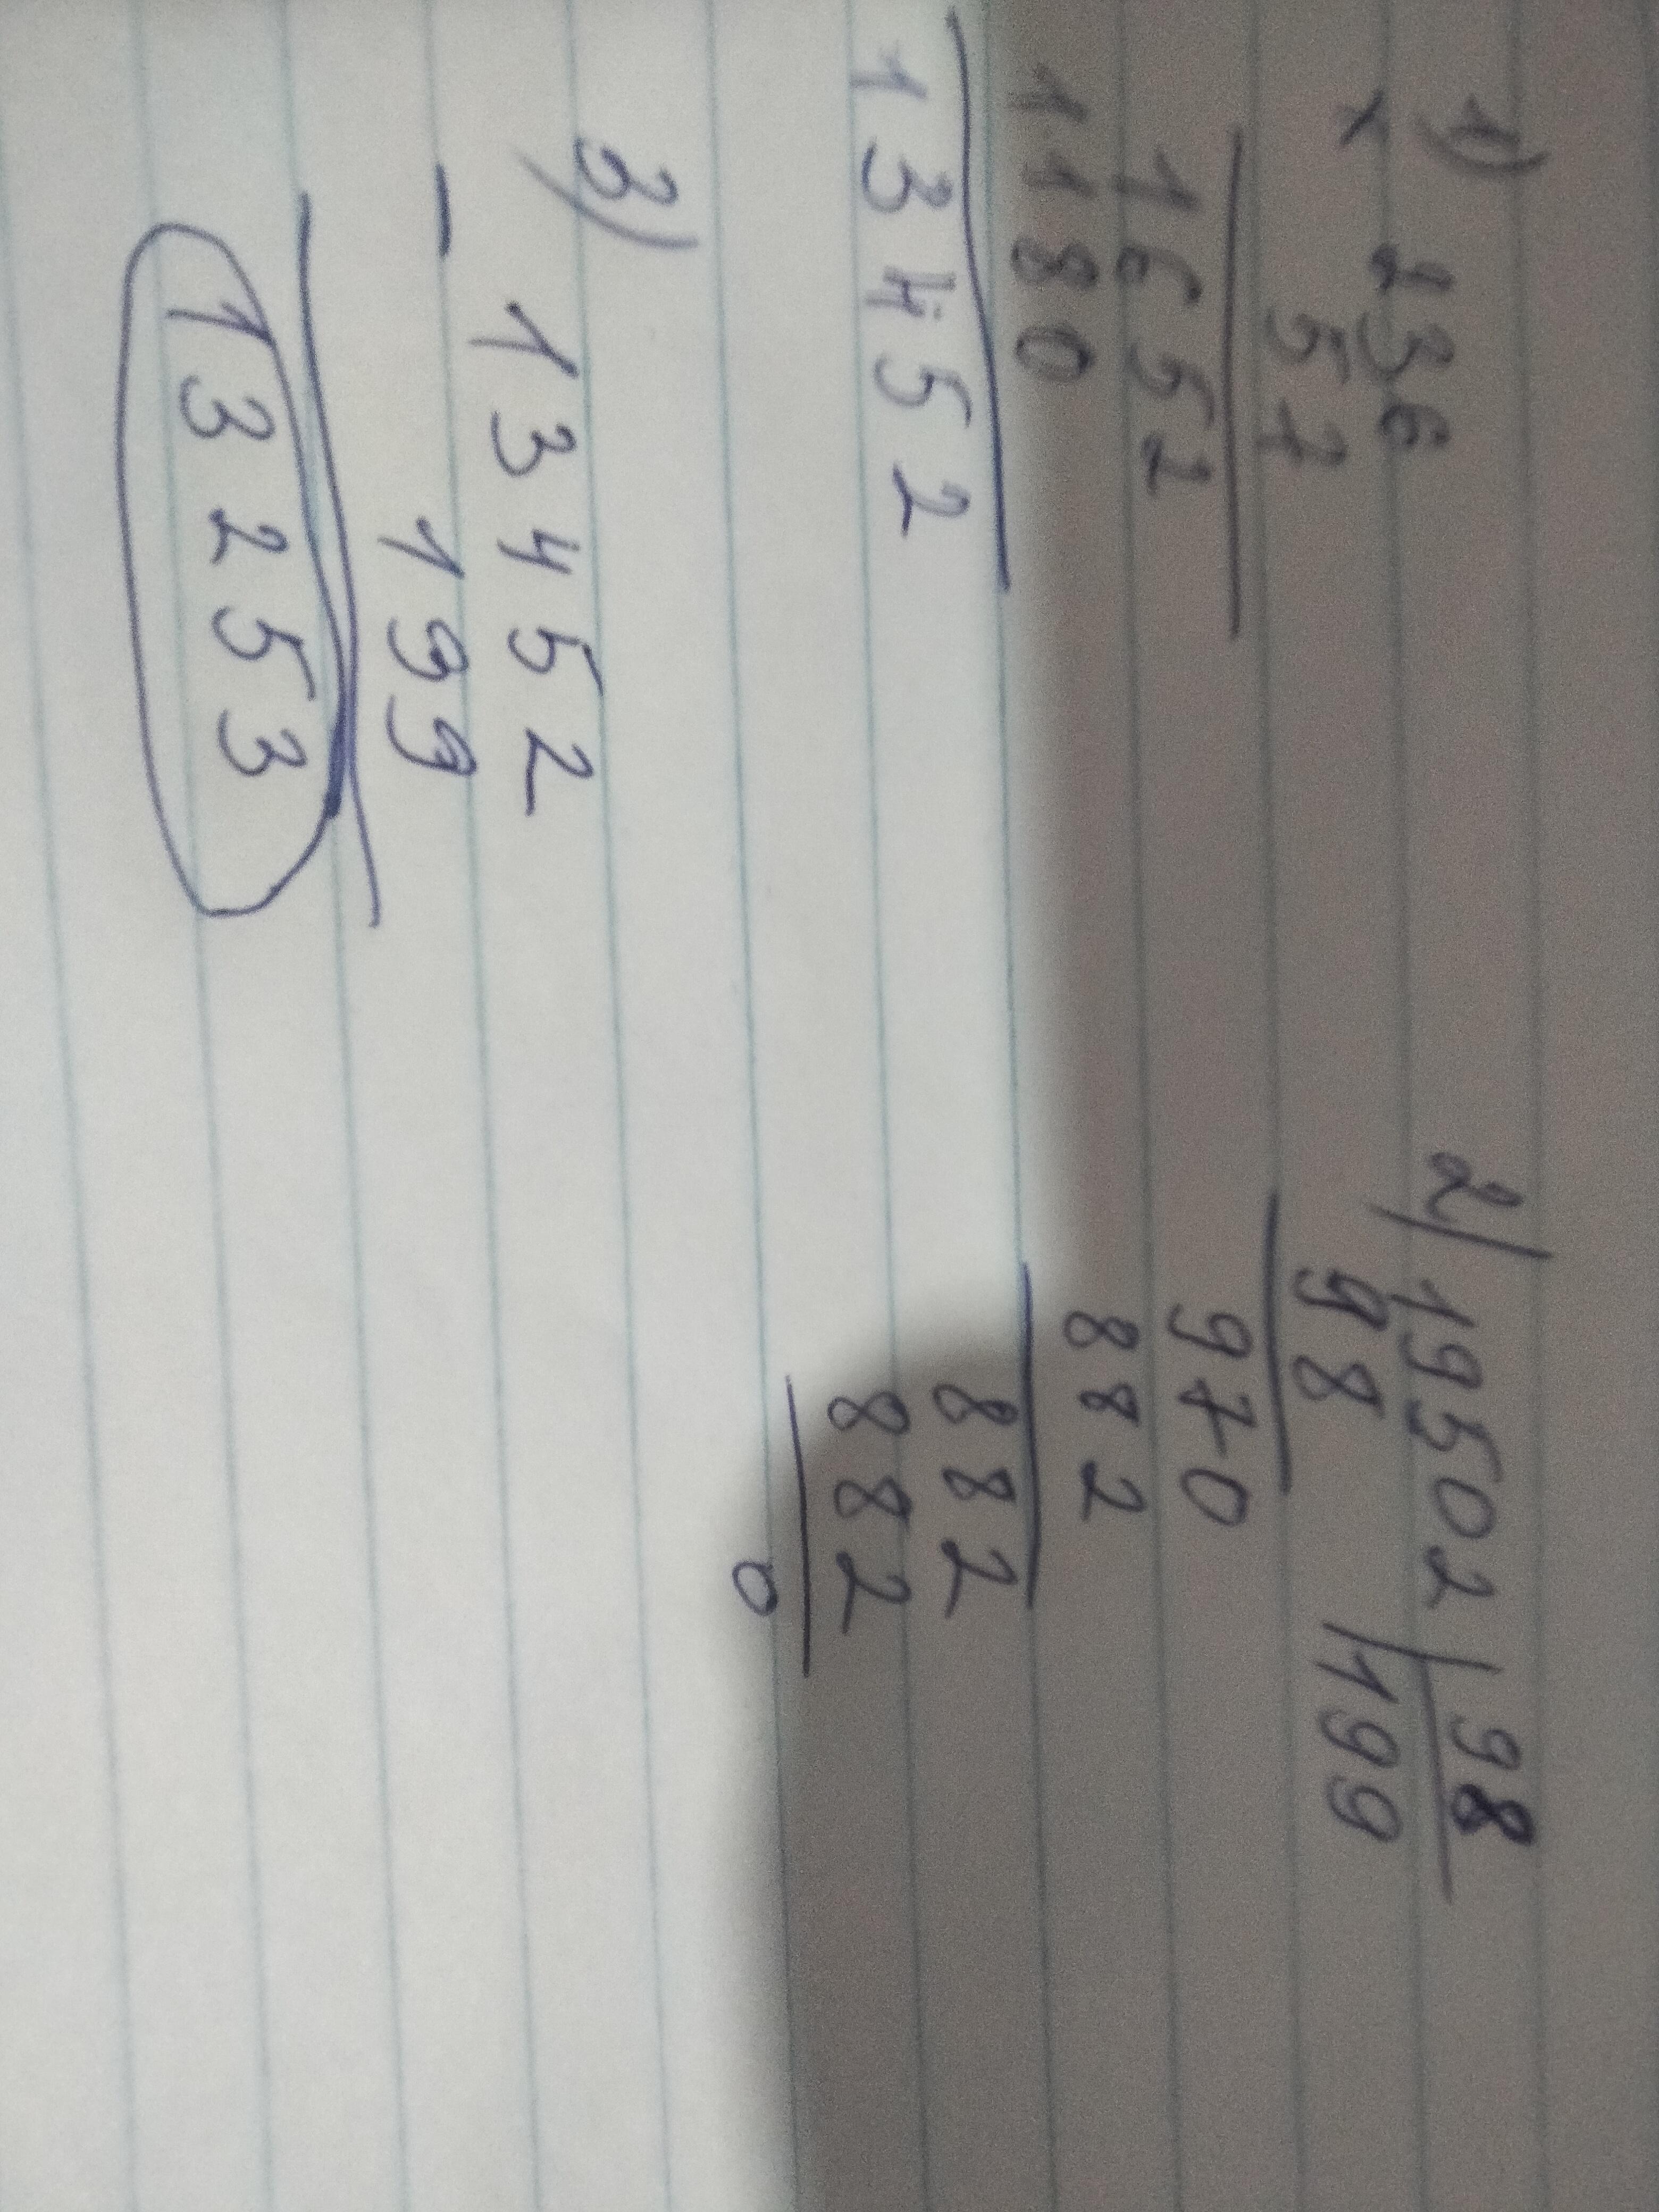 1) 236
× 57
1652
1180
13452
2) 19502 | 98
98 | 199
970
882
882
882
0
3) 13452
- 199
13253